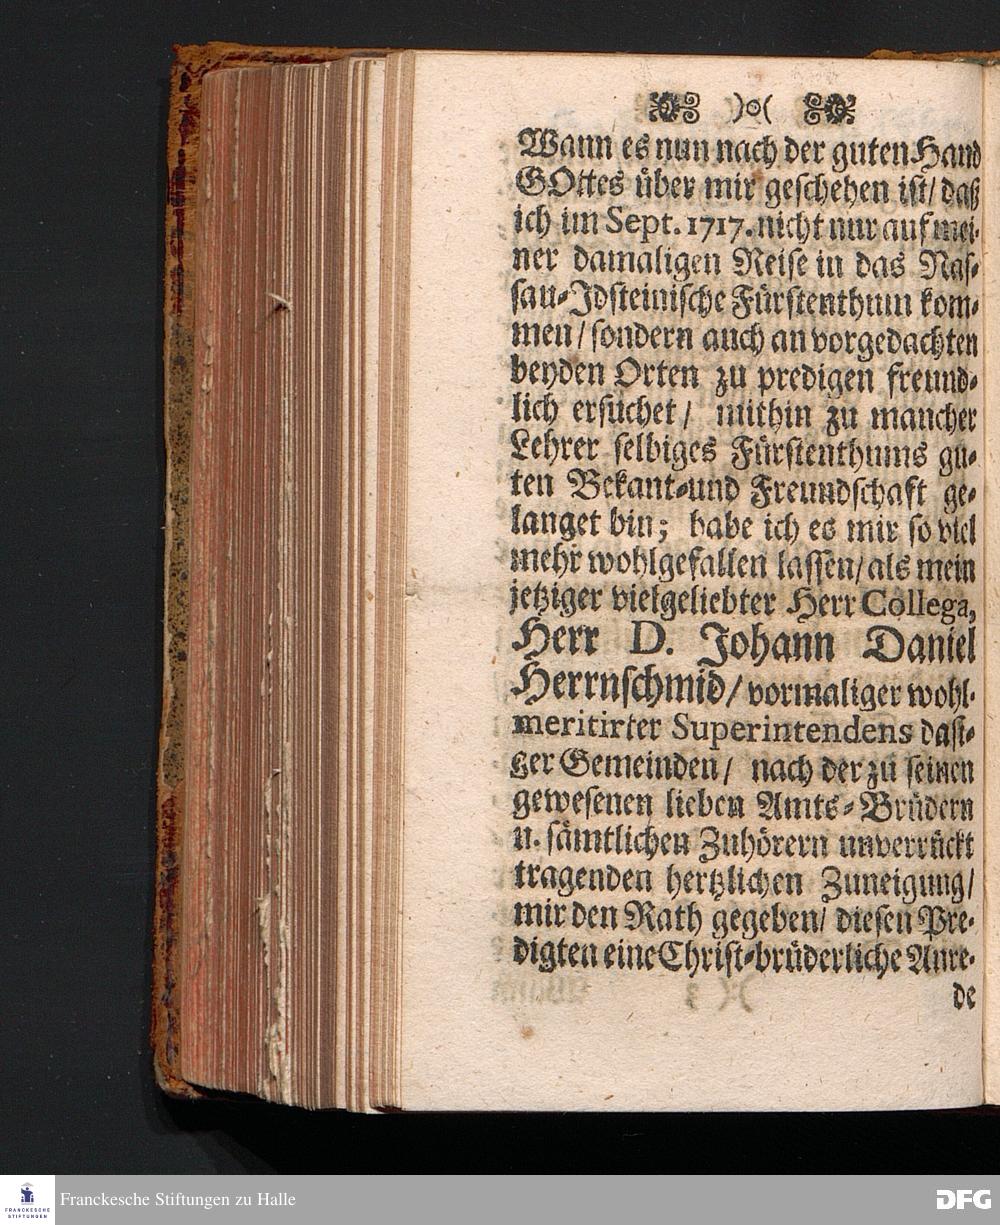 )o(
Wann es nun nach der guten Hand
GOttes über mir geschehen ist/ daß
ich im Sept. 1717. nicht nur auf mei-
ner damaligen Reise in das Nas-
sau-Idsteinische Fürstenthum kom-
men/ sondern auch an vorgedachten
beyden Orten zu predigen freund-
lich ersuchet/ mithin zu mancher
Lehrer selbiges Fürstenthums gu-
ten Bekant-und Freundschaft ge-
langet bin; habe ich es mir so viel
mehr wohlgefallen lassen/ als mein
jetziger vielgeliebter Herr Collega,
Herr D. Johann Daniel
Herrnschmid/ vormaliger wohl-
meritirter Superintendens dasi-
ger Gemeinden/ nach der zu seinen
gewesenen lieben Amts-Brüdern
u. sämtlichen Zuhörern unverrückt
tragenden hertzlichen Zuneigung/
mir den Rath gegeben/ diesen Pre-
digten eine Christ-brüderliche Anre-
de
FRANCKESCHE
STIFTUNGEN
Franckesche Stiftungen zu Halle
DFG